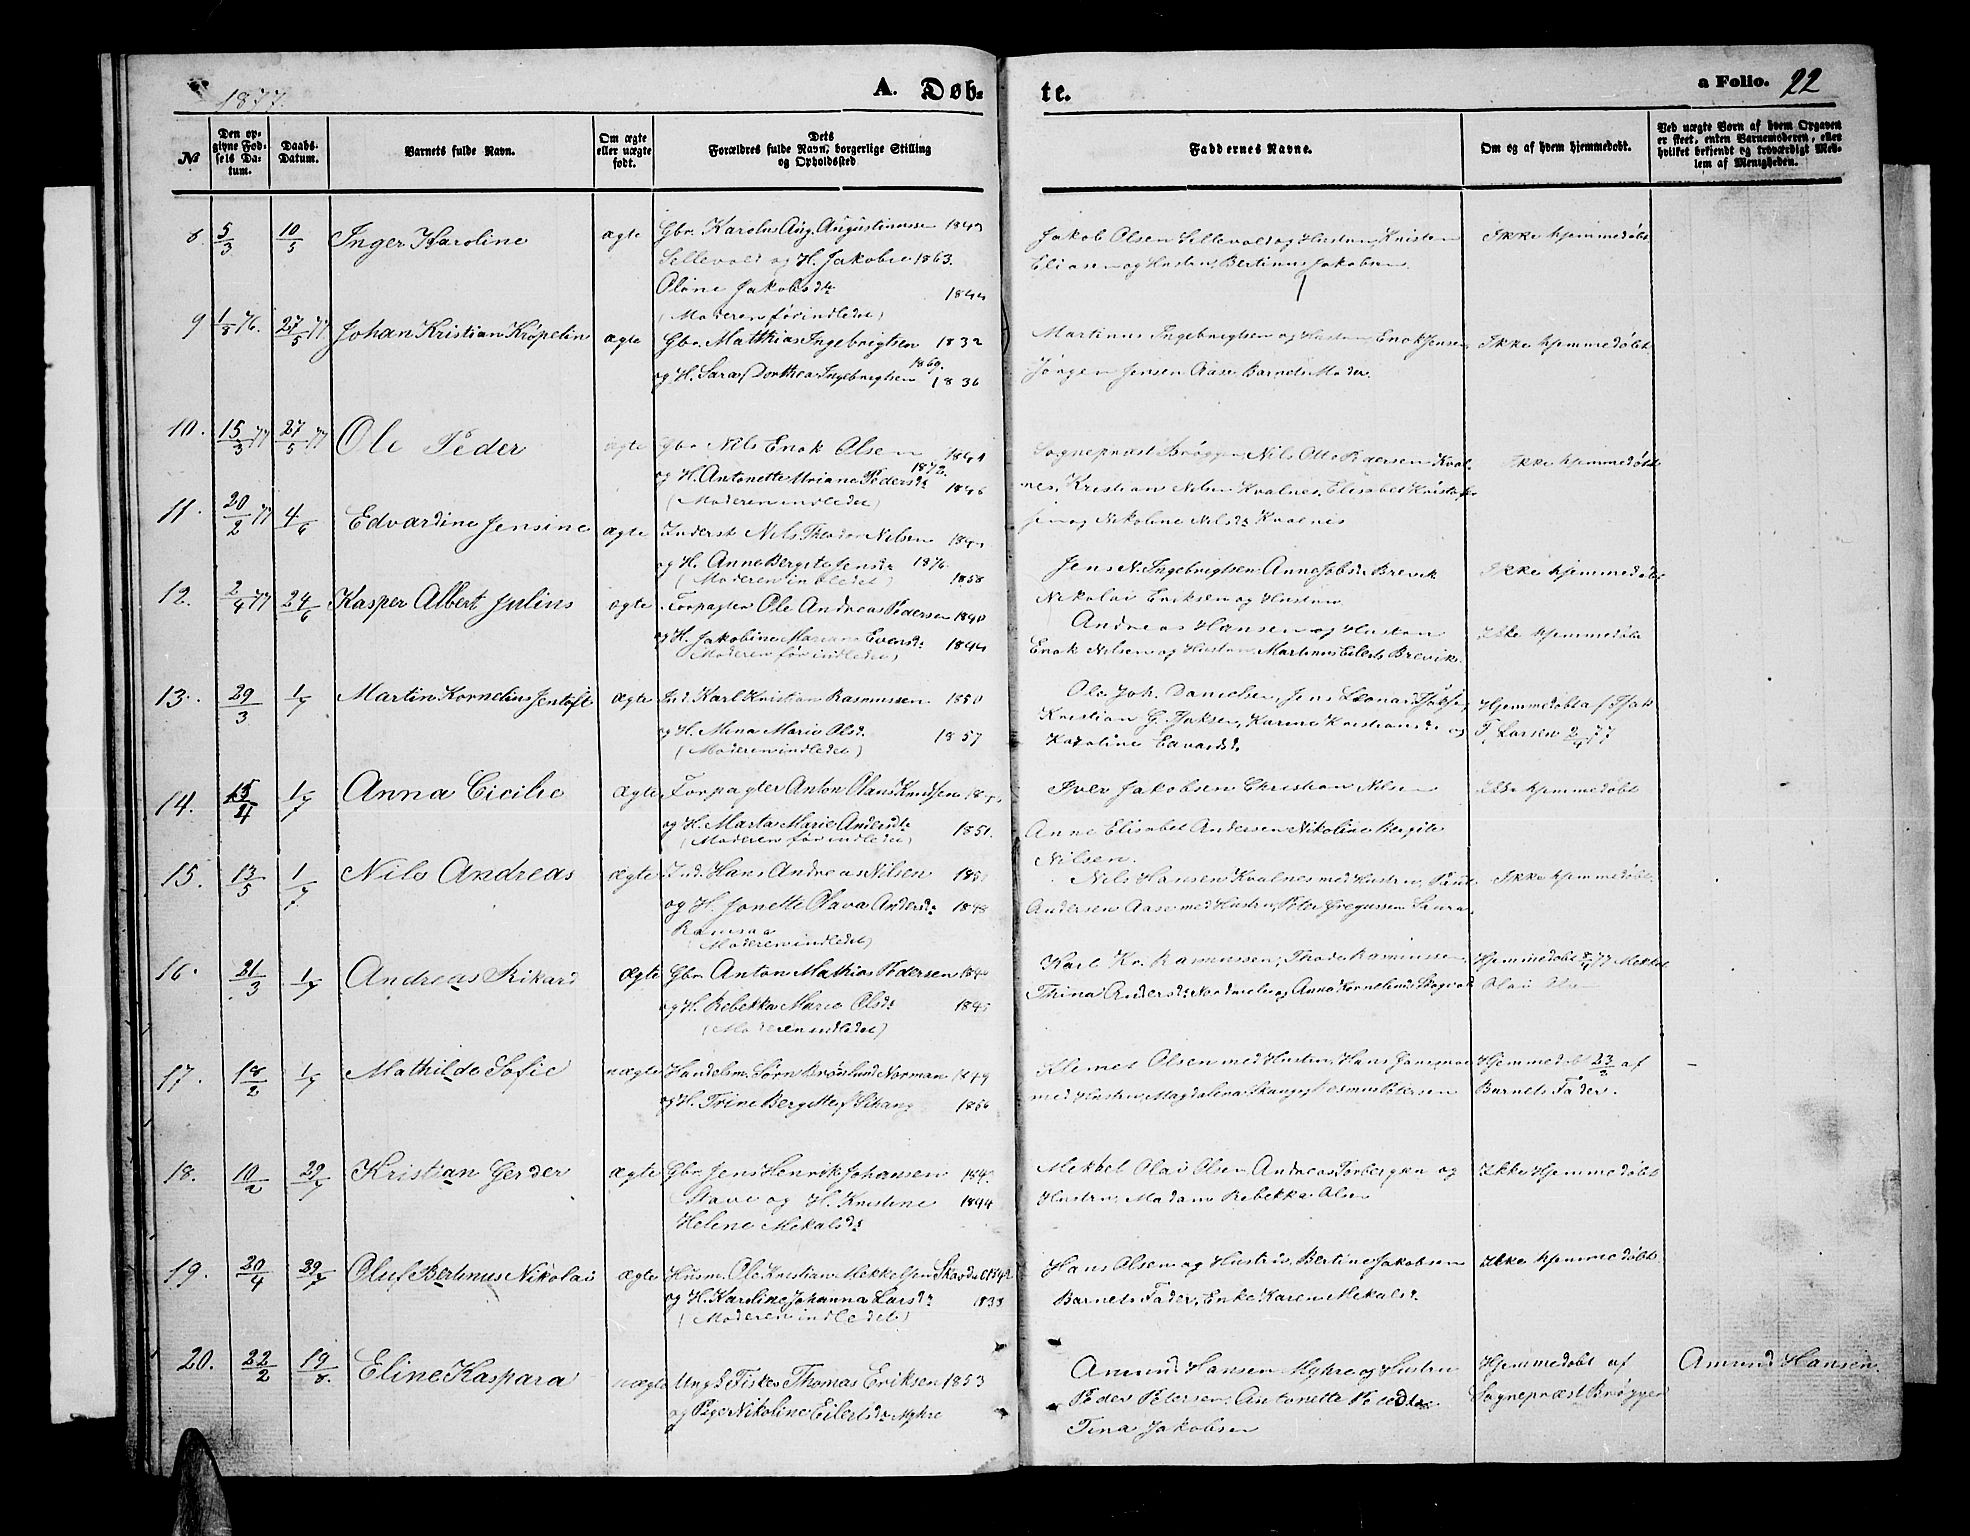 1877.
A. Døb-
te.
a Folio. 22
№
Den op-
givne Fød-
sels Da-
tum.
Daabs-
Datum.
Barnets fulde Navn.
Om ægte
eller uægte
født.
Dets
Forældres fulde Navn, borgerlige Stilling
og Opholdssted
Faddernes Navne.
Om og af hvem hjemmedøbt.
Ved uægte Børn af hvem Opgaven
er skeet, enten Barnemoderen, eller
hvilket bekjendt og troværdigt Med-
lem af Menigheden.
8. 5/3 10/5 Inger Karoline ægte Gbr. Karolus Aug. Augustinussen 1849
Sellevold og H. Jakobine 1863.
Oline Jakobsdtr 1844
(Moderen før indledet)
Jakob Olsen Sellevold og Hustru, Kristen
Eliasen og Hustru, Bertinus Jakobsen.
Ikke hjemmedøbt
9 1/8 76. 27/5 77 Johan Kristian Krøpelin ægte Gbr. Matthias Ingebrigtsen 1832
og H. Sara Dorthea Ingebrigtsen 1869. 1836
Martinus Ingebrigtsen og Hustru Enok Jensen
Jørgen Jensen Aase Barnets Moder.
Ikke hjemmedøbt
10. 15/3 77 27/5 77 Ole Peder ægte Gbr Nils Enok Olsen 1844
og H. Antonette Mriane Pedersd: 1872. 1846
(Moderen indledet)
Sognepræst Brøgger, Nils Otto Pedersen Kval-
nes, Kristian Nilsen Kvalnes, Elisabet Kristofer
sen og Nikoline Nilsd: Kvalnes
Ikke hjemmedøbt
11. 20/2 77 4/6 Edvardine Jensine ægte Inderst Nils Theodor Nilsen
og H. Anne Bergite Jensd: 1876 1858
(Moderen indledet)
Jens N. Ingebrigtsen Anne Jobsd: Brevik
Nikolai Eriksen og Hustru
Ikke hjemmedøbt
12. 2/4 77 24/6 Kasper Albert Julius ægte Forpagter Ole Andreas Pedersen 1840
og H. Jakobine Mariane Evensd: 1844
(Moderen før indledet)
Andreas Hansen og Hustru
Enok Nilsen og Hustru, Martinus Eilerts Brevik.
Ikke hjemmedøbt
13. 29/3 1/7 Martin Kornelius Jentoft ægte Ind. Karl Kristian Rasmussen 1850
og H. Mina Marie Olsd. 1857
(Moderen indledet)
Ole Joh. Danielsen, Jens Leonard
Kristian G. Isaksen, Karine Kristiansd: og
Karoline Edvardsd.
Hjemmedøbt af Isak
T. Larsen 2/4 77
14. 15/4 1/7 Anna Cicilie ægte Forpagter Anton Olaus Knudsen
og H. Marta Marie Andersdtr 1851.
(Moderen før indledet)
Iver Jakobsen Christian Nilsen
Anne Elisabet Andersen Nikoline Bergite
Nilsen.
Ikke hjemmedøbt
15. 13/5 1/7 Nils Andreas ægte Ind. Hans Andreas Nilsen 185
og H. Jonette Olava Andersd: 1848
Ramsaa
(Moderen indledet)
Nils Hansen Kvalnes med Hustru, Paul
Andersen Aase med Hustru, Peter Gregussen Saura
Ikke hjemmedøbt.
16. 21/3 1/7 Andreas Rikard ægte Gbr Anton Mathias Pedersen 184
og H. Rebekka Marie Olsd: 1845
(Moderen indledet)
Karl Kr. Rasmussen, Thode Rasmussen
Thina Andersd: og Anna Kornelius Skogvold
Hjemmedøbt 77 Mekkel
Olai Olsen
17. 18/2 1/7 Mathilde Sofie uægte Handelsm. Sørn Brøslund Norman 1849
og H. Trine Berg 1856
Klemet Olsen med Hustru, Hans Jansen
med Hustru, Magdalena Skang Petersen
Hjemmedøbt 23/2 af
Barnets Fader.
–
18. 10/2 29/7 Kristian Gerder ægte Gbr. Jens Henrik Johansen 184
Stave og H. Kristine 1844
Helene Mekalsd:
Mekkel Olai Olsen Andreas Torbergsen og
Hustru, Madam Rebekka Olsen
Ikke hjemmedøbt
19. 20/4 29/7 Oluf Bertinus Nikolai ægte Husm. Ole Kristian Mekkelsen Skavdal 1842
og H. Karoline Johanna Larsd: 1838
(Moderen indledet)
Hans Olsen og Hustru, Bertine Jakobsen
Barnets Fader, Enke Karen Mekalsd.
Ikke hjemmedøbt
20. 22/2 19/8. Eline Kaspara uægte Ungk. Fisker Thomas Eriksen 1853
og Pige Nikoline Eilertsd: Myhre
Amund Hansen Myhre og Hustru
Peder Petersen, Antonette
Tina Jakobsen
Hjemmedøbt af
Sognepræst Brøgger
Amund Hansen